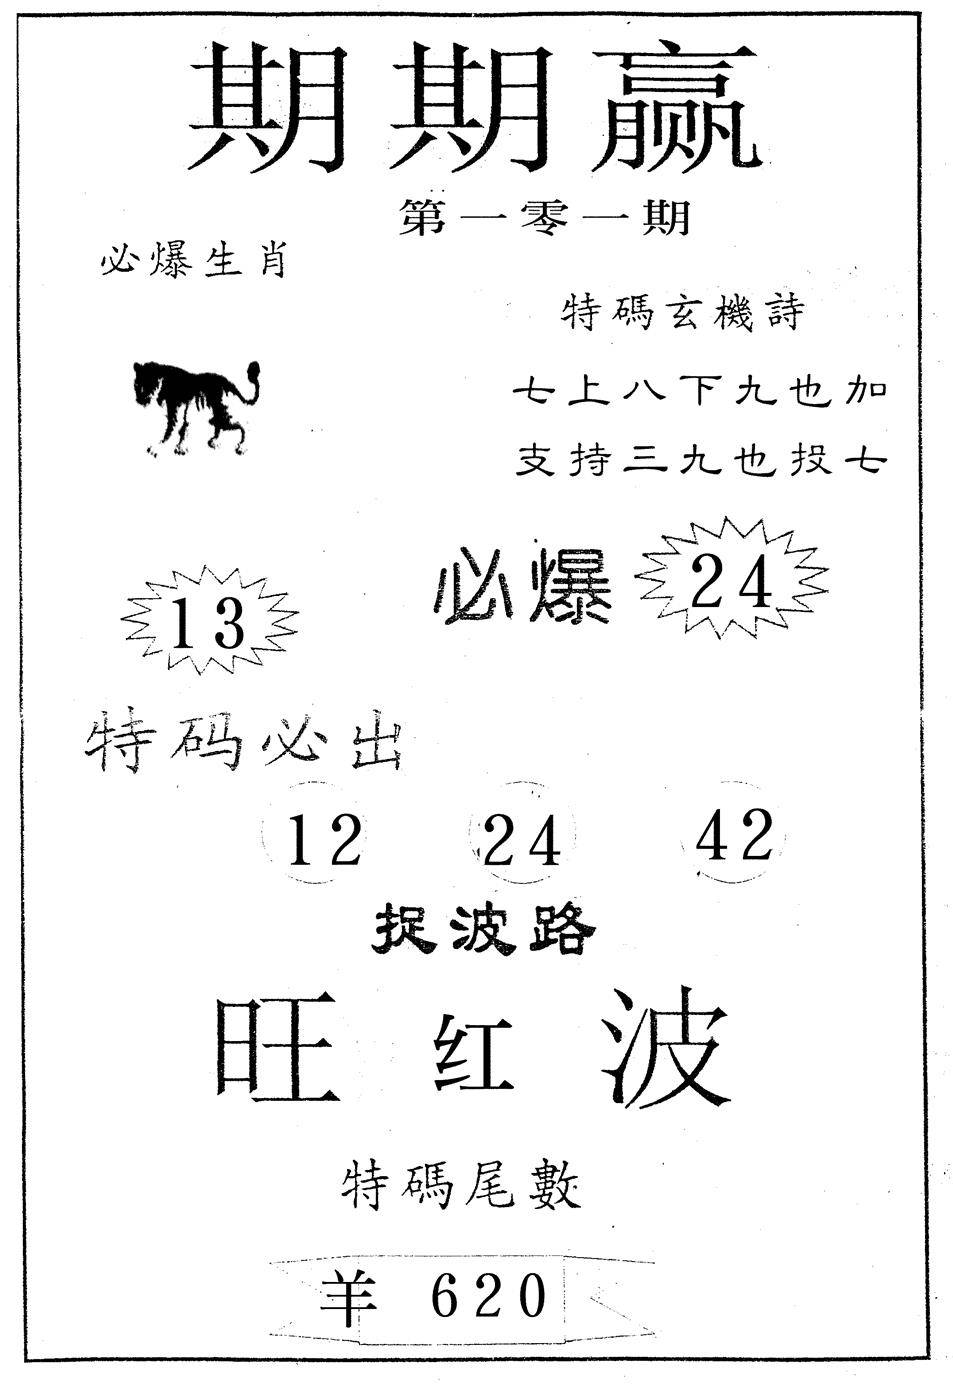 期期赢
第一零一期
必爆生肖
特碼玄機詩
七上八下九也加
支持三九也投七
必爆 24
13
特码必出
12 24 42
捉波路
旺红波
特碼尾數
羊 620